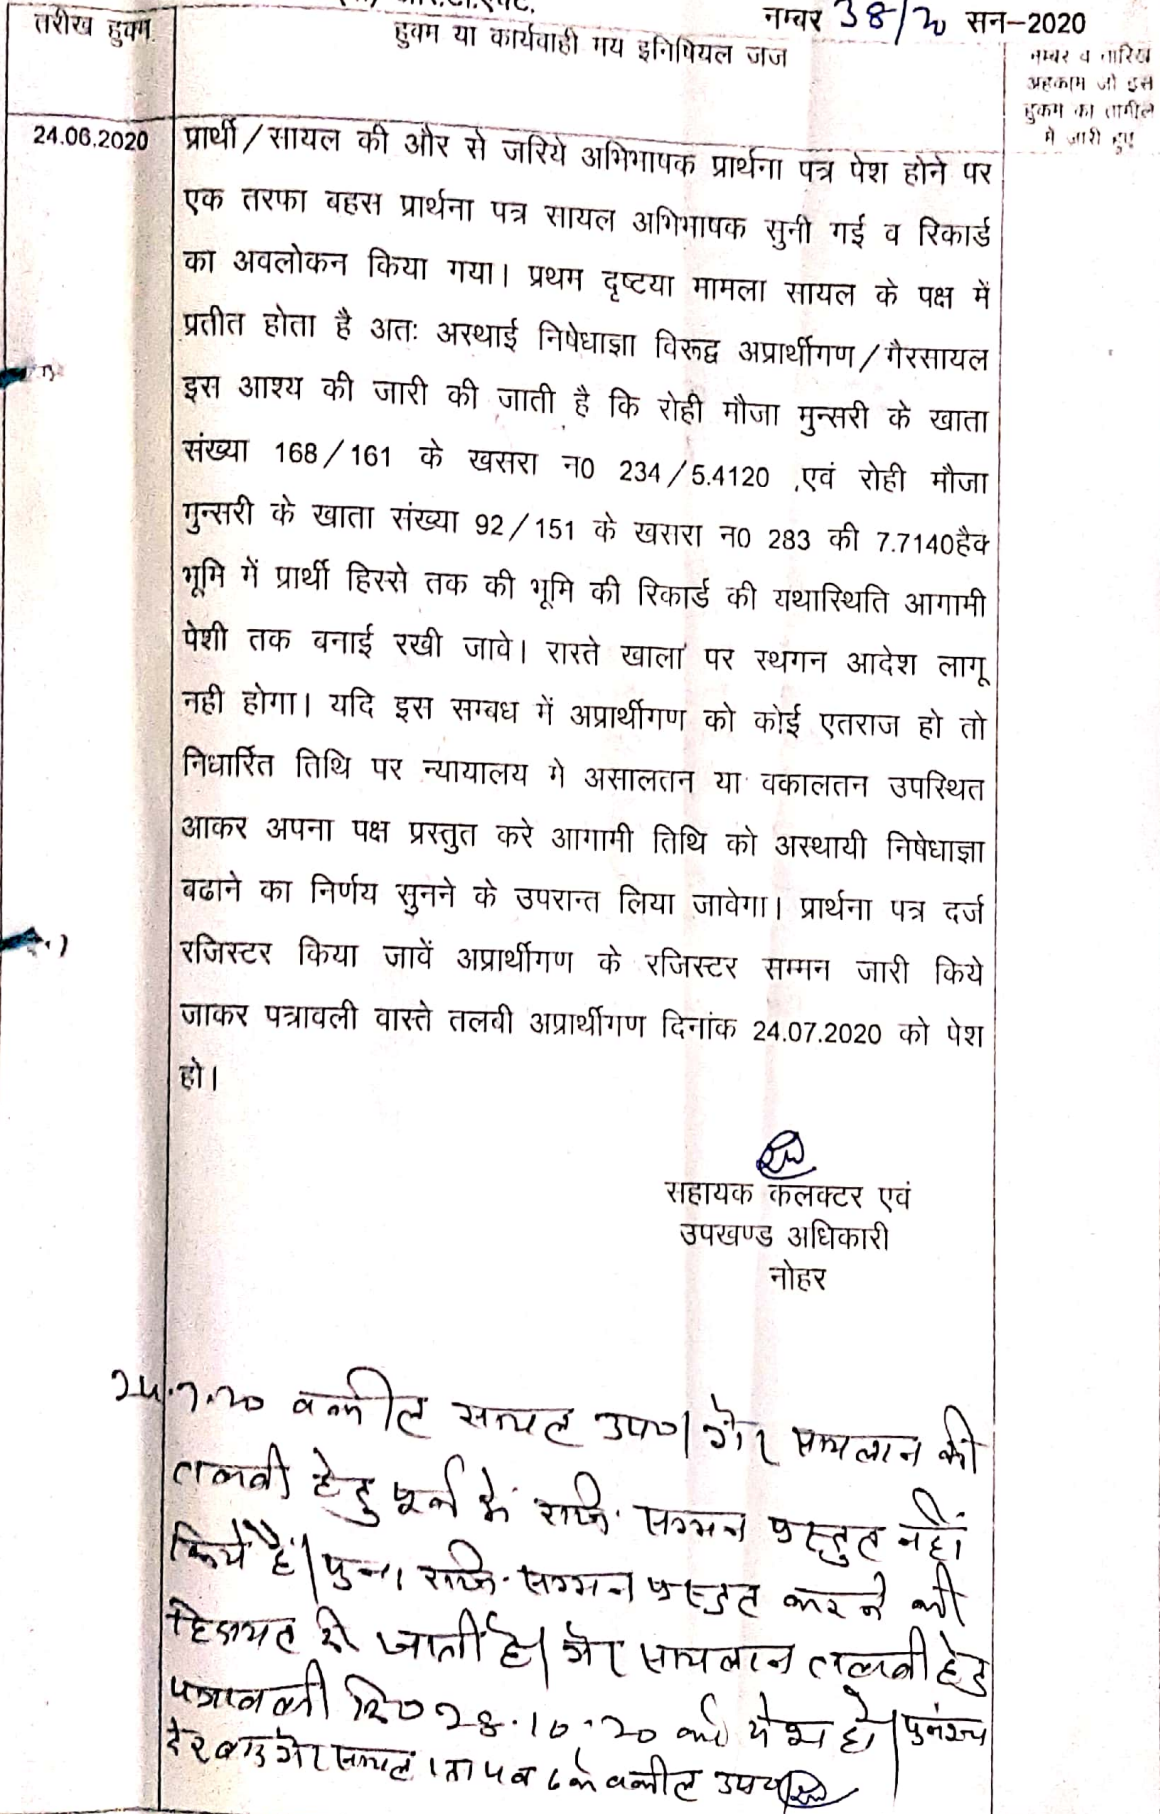 नम्बर 38/20 सन-2020
तारीख हुक्म
हुक्म या कार्यवाही मय इनिषियल जज
नम्बर व तारिख
अहकाम जो इस
हुकम का तामील
मे जारी हुए
24.06.2020
प्रार्थी/सायल की और से जरिये अभिभापक प्रार्थना पत्र पेश होने पर
एक तरफा बहस प्रार्थना पत्र सायल अभिभापक सुनी गई व रिकार्ड
का अवलोकन किया गया। प्रथम दृष्टया मामला सायल के पक्ष में
प्रतीत होता है अतः अस्थाई निषेधाज्ञा विरूद्व अप्रार्थीगण/गैरसायल
इस आश्य की जारी की जाती है कि रोही मौजा मुन्सरी के खाता
संख्या 168/161 के खसरा न0 234/5.4120 ,एवं रोही मौजा
मुन्सरी के खाता संख्या 92/151 के खसरा न0 283 की 7.7140हैक
भूमि में प्रार्थी हिस्से तक की भूमि की रिकार्ड की यथास्थिति आगामी
पेशी तक बनाई रखी जावे। रास्ते खाला पर स्थगन आदेश लागू
नही होगा। यदि इस सम्बध में अप्रार्थीगण को कोई एतराज हो तो
निधार्रित तिथि पर न्यायालय मे असालतन या वकालतन उपस्थित
आकर अपना पक्ष प्रस्तुत करे आगामी तिथि को अस्थायी निषेधाज्ञा
बढाने का निर्णय सुनने के उपरान्त लिया जावेगा। प्रार्थना पत्र दर्ज
रजिस्टर किया जावें अप्रार्थीगण के रजिस्टर सम्मन जारी किये
जाकर पत्रावली वास्ते तलवी अप्रार्थीगण दिनांक 24.07.2020 को पेश
हो।
सहायक कलक्टर एवं
उपखण्ड अधिकारी
नोहर
24.7.20 वकील सायल उप0। गैर सायलान की
तलबी हेतु पूर्व में रजि. सम्मन प्रस्तुत नहीं
किये हैं। पुनः रजि. सम्मन प्रस्तुत करने की
हिदायत दी जाती है। गैर सायलान तलबी हेतु
पत्रावली दि0 28.10.20 को पेश हो। पुनश्च
देर बाद गैर सायल 1 ता 4 व 6 के वकील उप0